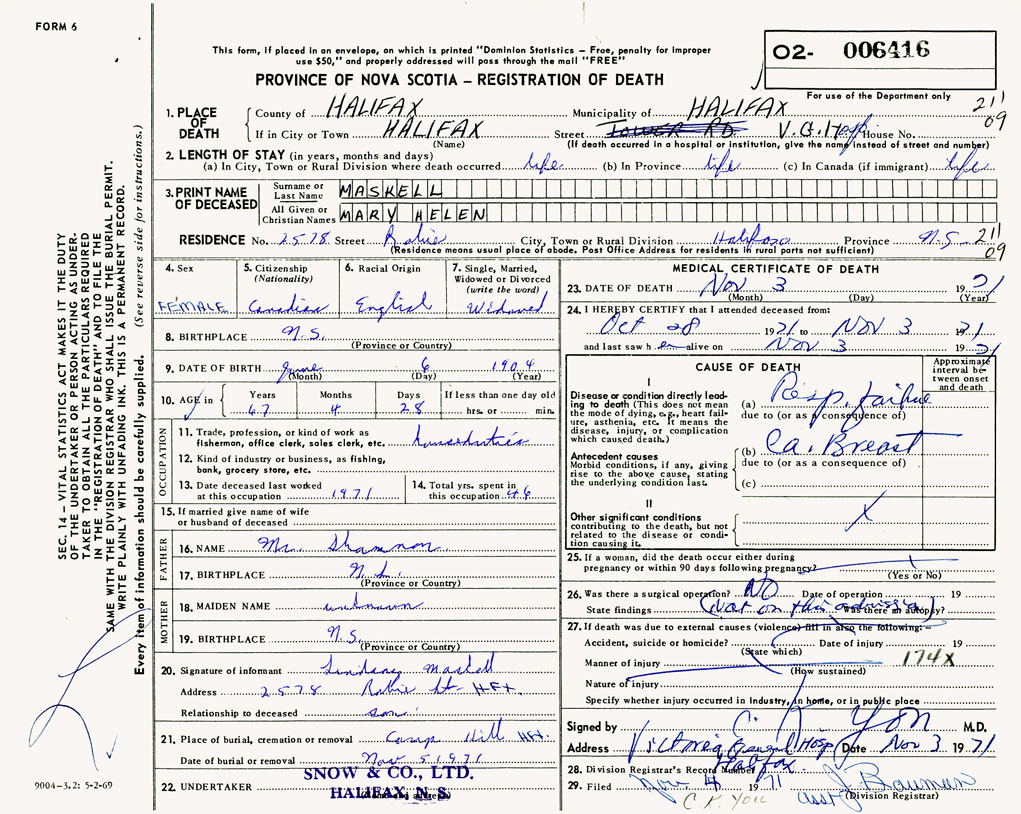 FORM 6
This form, if placed in an envelope, on which is printed "Dominion Statistics – Free, penalty for improper
use $50," and properly addressed will pass through the mail "FREE"
PROVINCE OF NOVA SCOTIA – REGISTRATION OF DEATH
O2- 006416
For use of the Department only
211
09
1. PLACE OF DEATH
County of HALIFAX Municipality of HALIFAX
If in City or Town HALIFAX Street TOWER RD V.G. Hosp House No.
(Name) (If death occurred in a hospital or institution, give the name instead of street and number)
2. LENGTH OF STAY (in years, months and days)
(a) In City, Town or Rural Division where death occurred life (b) In Province life (c) In Canada (if immigrant) life
3. PRINT NAME OF DECEASED
Surname or Last Name MASKELL
All Given or Christian Names MARY HELEN
RESIDENCE No. 2578 Street Robie City, Town or Rural Division Halifax Province N.S.
(Residence means usual place of abode. Post Office Address for residents in rural parts not sufficient)
211
09
4. Sex FEMALE
5. Citizenship (Nationality) Canadian
6. Racial Origin English
7. Single, Married, Widowed or Divorced (write the word) Widowed
8. BIRTHPLACE N.S.
(Province or Country)
9. DATE OF BIRTH June 6 1904
(Month) (Day) (Year)
10. AGE in Years Months Days If less than one day old
67 4 28 hrs. or min.
OCCUPATION
11. Trade, profession, or kind of work as fisherman, office clerk, sales clerk, etc. houseduties
12. Kind of industry or business, as fishing, bank, grocery store, etc.
13. Date deceased last worked at this occupation 1971
14. Total yrs. spent in this occupation 46
15. If married give name of wife or husband of deceased
FATHER
16. NAME Mr. Shannon
17. BIRTHPLACE N.S.
(Province or Country)
MOTHER
18. MAIDEN NAME unknown
19. BIRTHPLACE N.S.
(Province or Country)
20. Signature of informant Lindsay Maskell
Address 2578 Robie St- HFX.
Relationship to deceased son.
21. Place of burial, cremation or removal Camp Hill HFX.
Date of burial or removal Nov 5 1971
22. UNDERTAKER SNOW & CO., LTD.
HALIFAX, N. S.
MEDICAL CERTIFICATE OF DEATH
23. DATE OF DEATH Nov 3 1971
(Month) (Day) (Year)
24. I HEREBY CERTIFY that I attended deceased from:
Oct 28 1971 to Nov 3 1971
and last saw h er alive on Nov 3 1971
CAUSE OF DEATH
Approximate interval between onset and death
I
Disease or condition directly leading to death (This does not mean the mode of dying, e.g., heart failure, asthenia, etc. It means the disease, injury, or complication which caused death.)
(a) Resp. failure
due to (or as a consequence of)
Antecedent causes
Morbid conditions, if any, giving rise to the above cause, stating the underlying condition last.
(b) Ca. Breast
due to (or as a consequence of)
(c)
II
Other significant conditions contributing to the death, but not related to the disease or condition causing it.
X
25. If a woman, did the death occur either during
pregnancy or within 90 days following pregnancy?
(Yes or No)
26. Was there a surgical operation? NO Date of operation 19
State findings (not on this admission) Was there an autopsy?
27. If death was due to external causes (violence) fill in also the following:
Accident, suicide or homicide? Date of injury 19
(State which)
Manner of injury 174X
(How sustained)
Nature of injury
Specify whether injury occurred in industry, in home, or in public place
Signed by M.D.
Address Victoria General Hosp Date Nov 3 1971
Halifax
28. Division Registrar's Record Number
29. Filed Nov 4 1971 Asst J. Bauman
(Division Registrar)
C.K. YOU
SEC. 14 – VITAL STATISTICS ACT MAKES IT THE DUTY
OF THE UNDERTAKER OR PERSON ACTING AS UNDER-
TAKER TO OBTAIN ALL THE PARTICULARS REQUIRED
IN THE "REGISTRATION OF DEATH" AND TO FILE THE
SAME WITH THE DIVISION REGISTRAR WHO SHALL ISSUE THE BURIAL PERMIT.
WRITE PLAINLY WITH UNFADING INK. THIS IS A PERMANENT RECORD.
Every item of information should be carefully supplied. (See reverse side for instructions.)
9004-3.2: 5-2-69